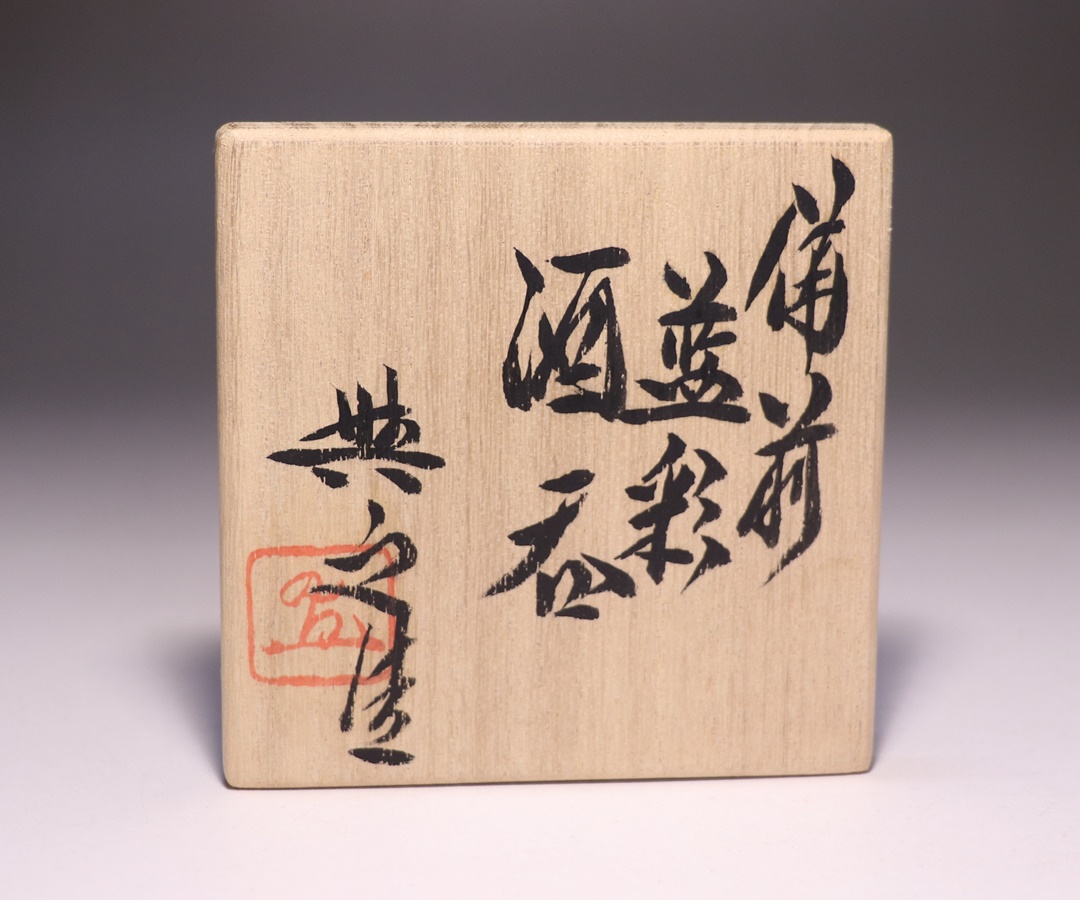 備前
藍彩
酒呑
典之